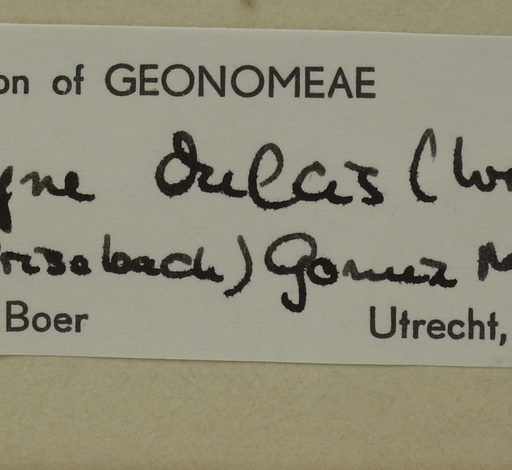 on of GEONOMEAE
gne dulcis (Wr
Grisebach) Gomez M
Boer Utrecht,